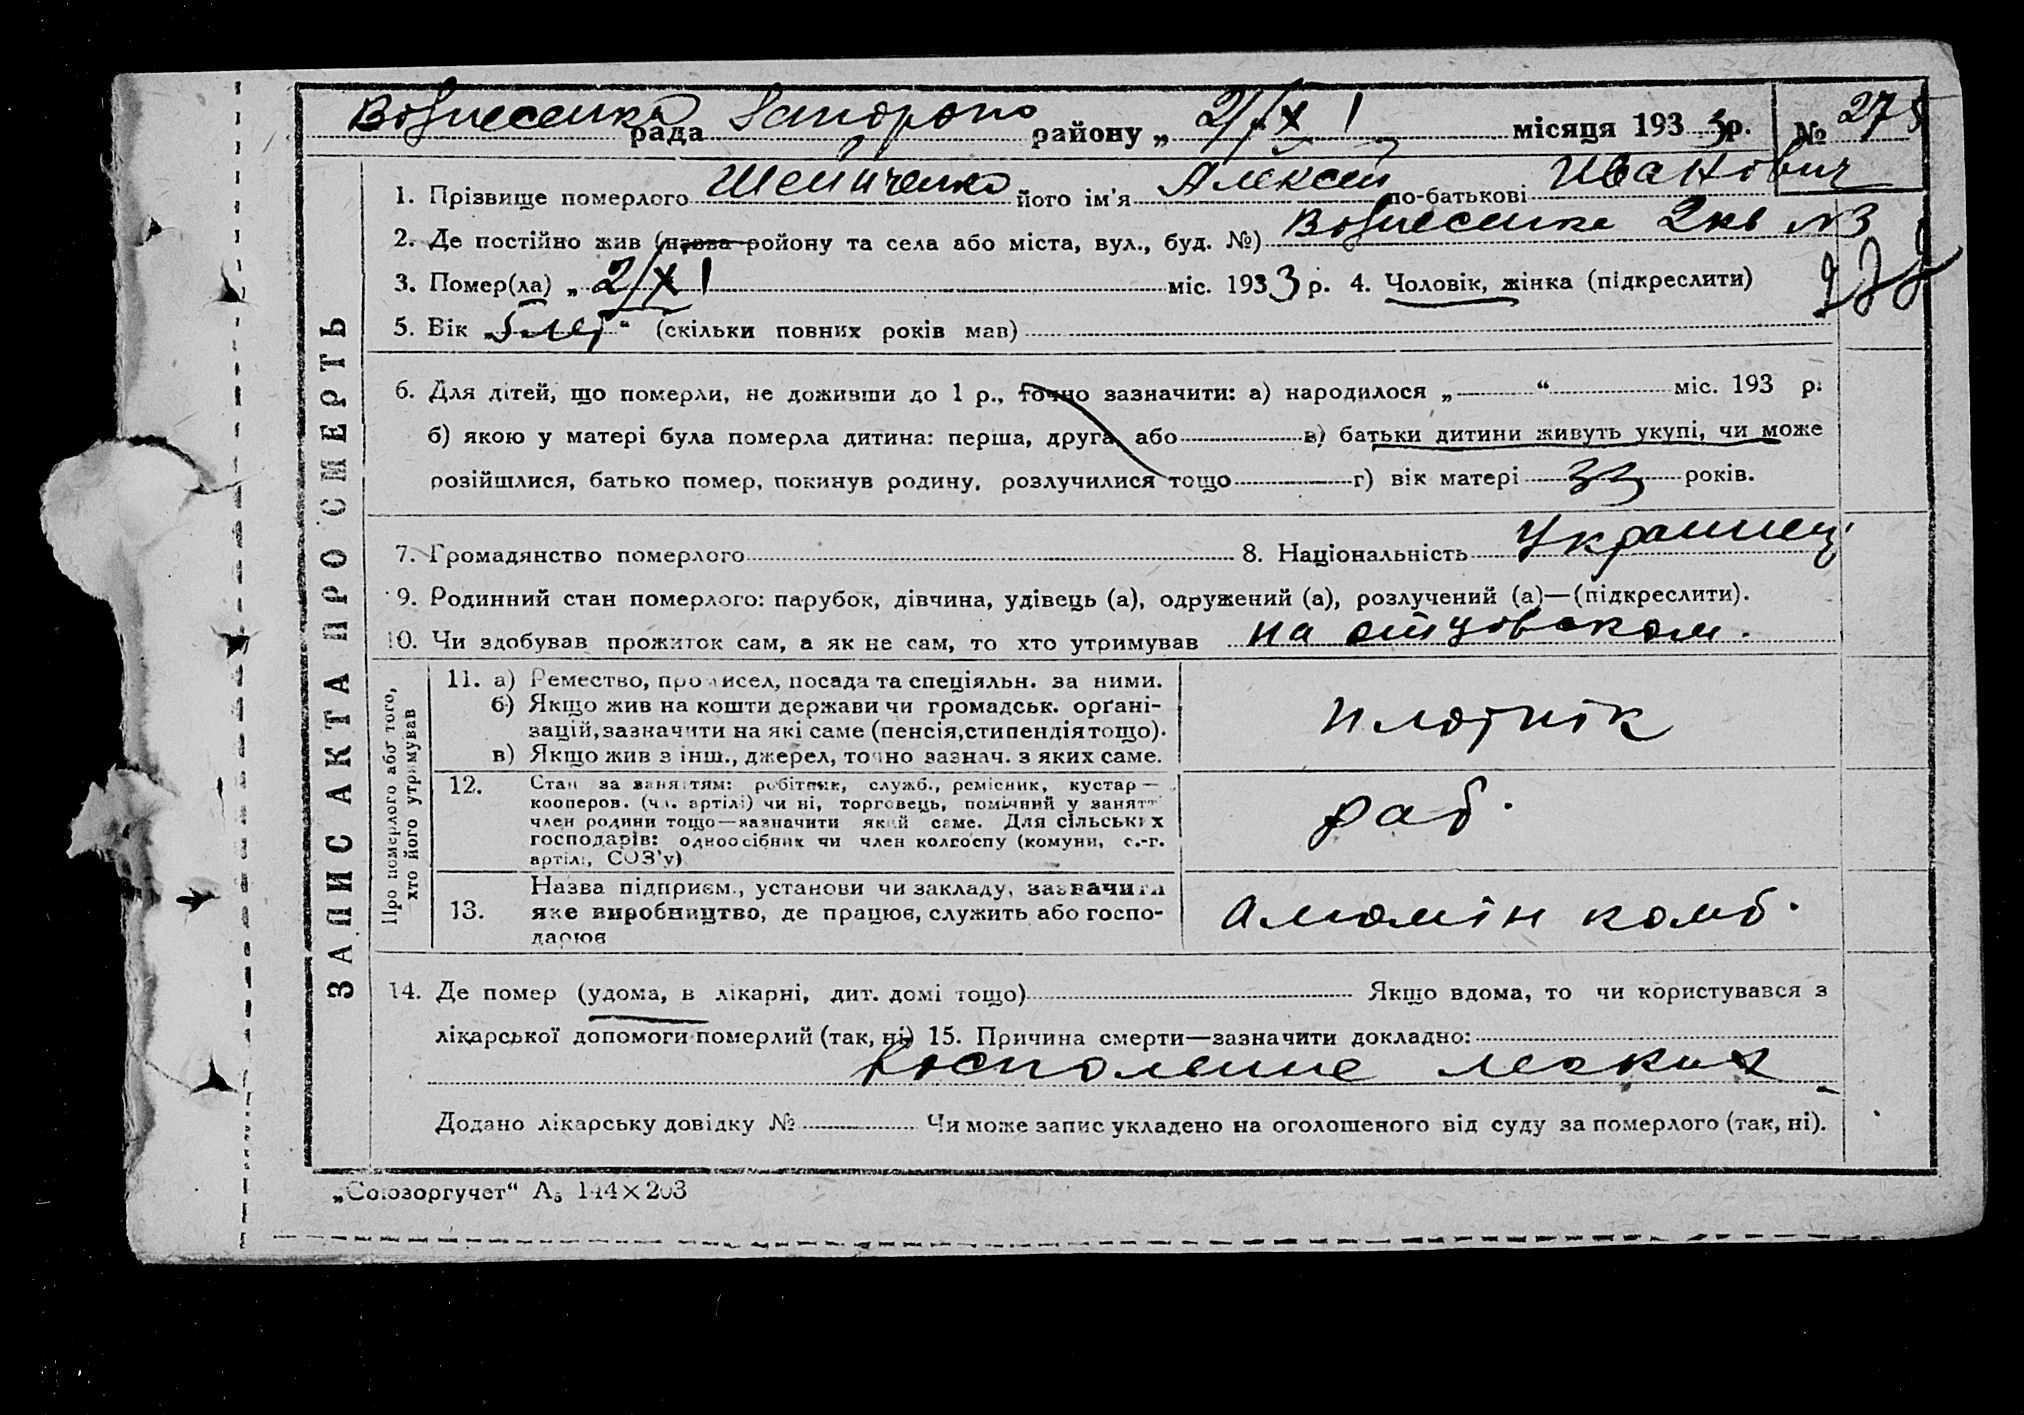 Вознесенка рада Запорож району „ 2/XI місяця 1933 р. № 275
1. Прізвище померлого його ім'я Алексей по-батькові Иванович
2. Де постійно жив (назва ройону та села або міста, вул., буд. №) Вознесенка 2кв №3
3. Помер(ла) „ 2/XI міс. 1933 р. 4. Чоловік, жінка (підкреслити)
5. Вік „5 лет“ (скільки повних років мав)
6. Для дітей, що померли, не доживши до 1 р., точно зазначити: а) народилося „ “ міс. 193 р.
б) якою у матері була померла дитина: перша, друга або в) батьки дитини живуть укупі, чи може
розійшлися, батько помер, покинув родину, розлучилися тощо г) вік матері 33 років.
7. Громадянство померлого 8. Національність Украинец
9. Родинний стан померлого: парубок, дівчина, удівець (а), одружений (а), розлучений (а)—(підкреслити).
10. Чи здобував прожиток сам, а як не сам, то хто утримував на отцовском.
ЗАПИС АКТА ПРО СМЕРТЬ
Про померлого або того,
хто його утримував
11. а) Ремество, промисел, посада та спеціяльн. за ними.
б) Якщо жив на кошти держави чи громадськ. орґані-
зацій, зазначити на які саме (пенсія, стипендія тощо).
в) Якщо жив з інш., джерел, точно зазнач. з яких саме.
плотнік
12. Стан за заняттям: робітник, служб., ремісник, кустар—
кооперов. (чл. артілі) чи ні, торговець, помічний у занятт
член родини тощо—зазначити який саме. Для сільських
господарів: одноосібник чи член колгоспу (комуни, с.-г.
артілі, СОЗ'у)
раб.
13. Назва підприєм., установи чи закладу, зазначити
яке виробництво, де працює, служить або госпо-
дарює
Алюмін комб.
14. Де помер (удома, в лікарні, дит. домі тощо) Якщо вдома, то чи користувався з
лікарської допомоги померлий (так, ні) 15. Причина смерти—зазначити докладно:
восполение легких
Додано лікарську довідку № Чи може запис укладено на оголошеного від суду за померлого (так, ні).
„Союзоргучет“ А₅ 144×203